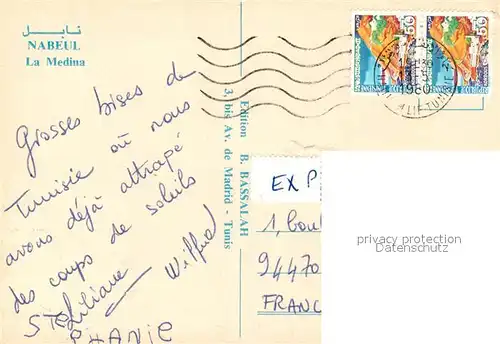 نابل
NABEUL
La Medina
Grosses bises de
Tunisie où nous
avons déjà attrapé
des coups de soleils
Liliane Wilfried
STEPHANIE
Edition B. BASSALAH
3, bis Av. de Madrid - Tunis
50
50
1980
EXP
1, Boul
94470
FRANC
privacy protection
Datenschutz